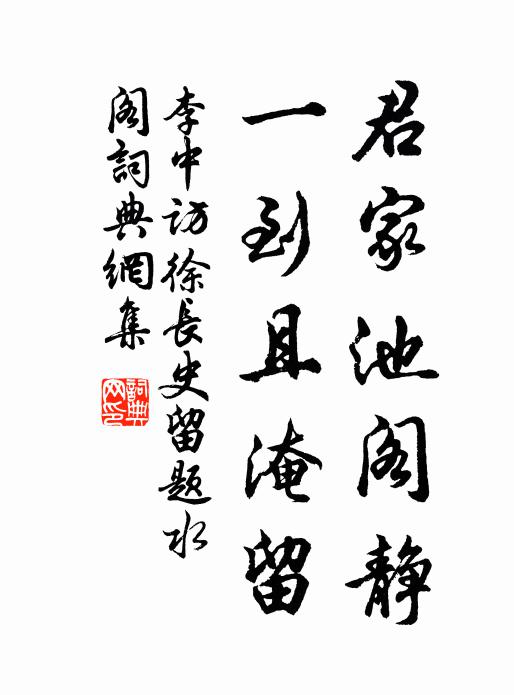 君家池阁静
一到且淹留
李中访徐長史留题水
阁詞典網集
詞典网印